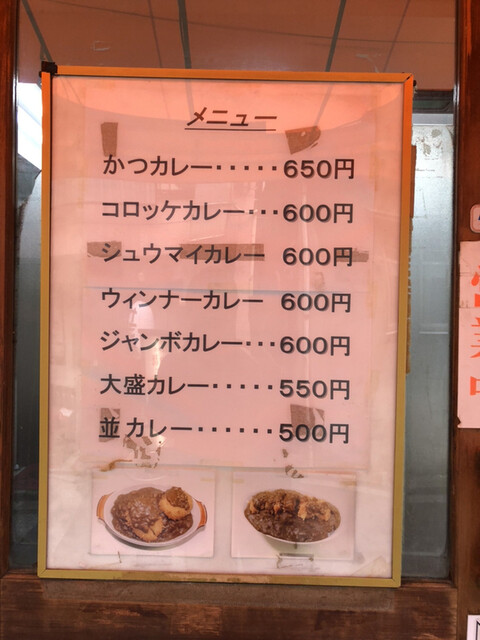 メニュー
かつカレー・・・・・650円
コロッケカレー・・・600円
シュウマイカレー 600円
ウィンナーカレー 600円
ジャンボカレー・・・600円
大盛カレー・・・・・550円
並カレー・・・・・・500円
業中